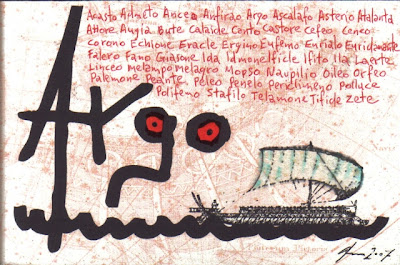 Acasto Admeto Anceo Anfirao Argo Ascalafo Asterio Atalanta
Attore Augia Bute Calaide Canto Castore Cefeo Ceneo
Corono Echione Eracle Ergino Eufemo Eurialo Euridamante
Falero Fano Giasone Ida Idmone Ificle Ifito Ila Laerte
Linceo Melampo Meleagro Mopso Nauplio Oileo Orfeo
Palemone Peante Peleo Peneleo Periclimeno Polluce
Polifemo Stafilo Telamone Tifide Zete
Argo